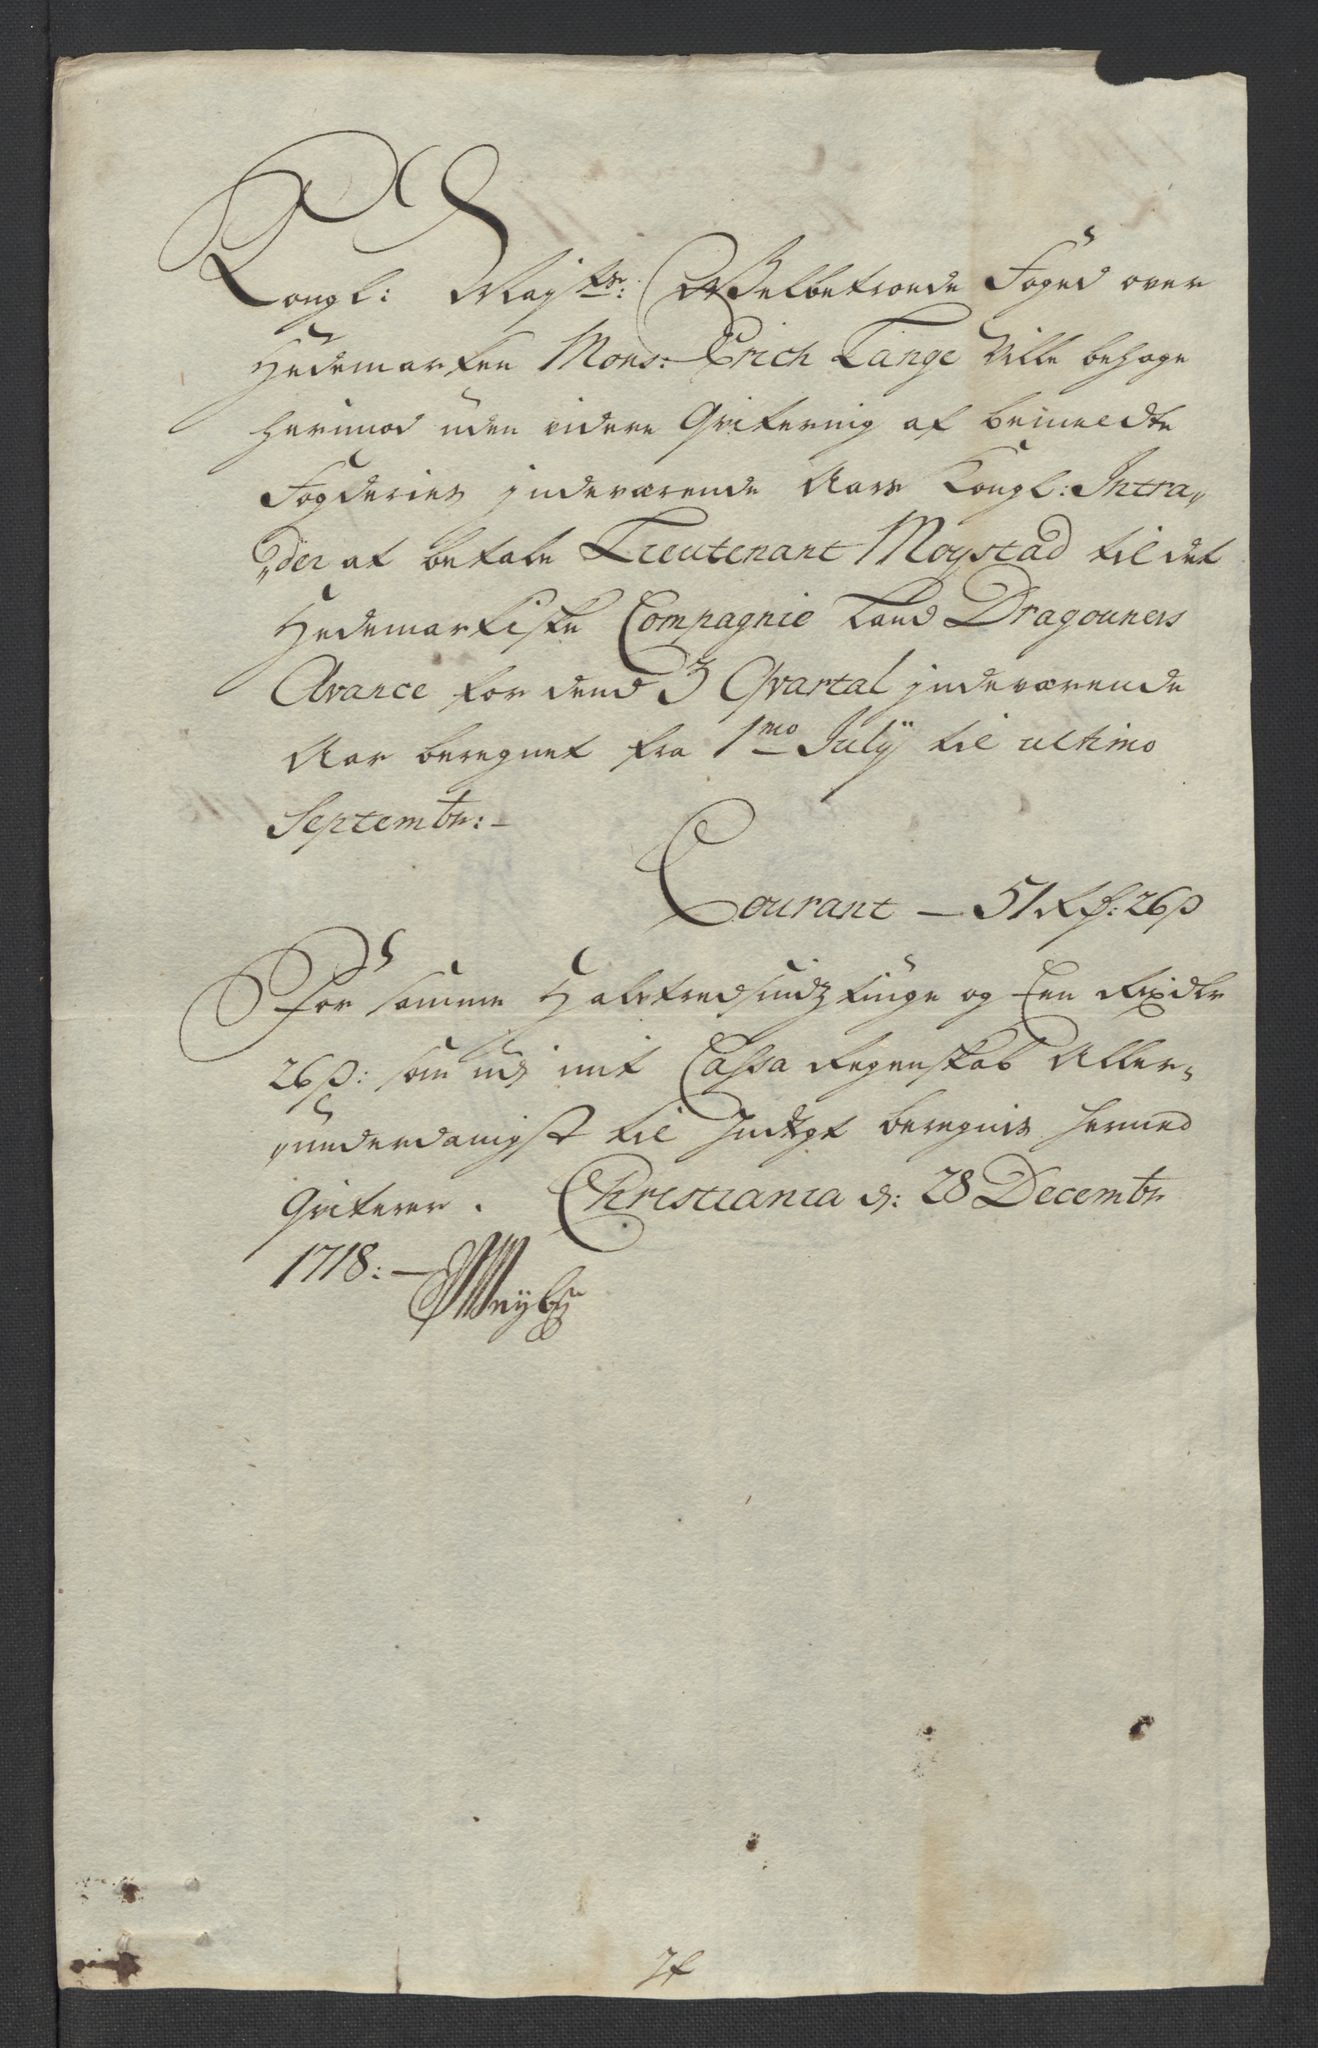 Kongl: Maj:ts: Velbetroede Foged over
Hedemarken Mons: Erich Lange Ville behage
herimod uden videre Qvitering af bemeldte
Fogderies indeværende Aars Kongl: Intra„
„der at betale Lieutenant Moystad til det
Hedemarkiske Compagnie Land Dragouners
Avance for dend 3 Qvartal indeværende
Aar beregnet fra 1mo Julij til ultimo
Septembr: –
Courant — 51 Rß: 26ß
For samme Halvtredsindztiuge og Een Rixdlr
26ß: som udj mit Cassa Regenskab Aller„
„underdanigst til Indtægt beregnis hermed
Qviterer. Christiania d: 28 Decembr
1718: —